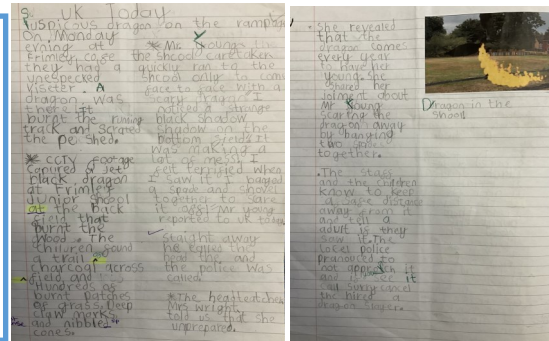 UK Today
Suspicous dragon on the rampage
On Monday
evning at
Frimley C of E
they had a
unexpecked
viseter. A
dragon was
there at
burnt the running
track and scrated
the pe shed.
* CCTV footage
capured a jet
black dragon
at Frimley
Junior School
at the back
field that
burnt the
wood. The
children sound
a trail
charcoal across
field and
Hundreds of
burnt patches
of grass. Deep
claw marks
and nibbled
cones.
* Mr Young
the shcool caretaker
quickly ran to the
shcool only to come
face to face with a
scary dragon. I
notised a strange
black shadow
shadow on the
bottom field. It
was making a
lot of mess! I
felt terrified when
I saw it. I banged
a spade and shovel
together to scare
it off. Mr Young
reported to UK today
staight away
he called the
head the and
the police was
called.
* The headteitcher
Mrs Wright
told us that she
unprepared.
• She revealed
that the
dragon comes
every year
to have her
young. She
shared her
about
Mr Young
scaring the
dragon away
by hanging
two
together.
• The staff
and the children
know to keep
a safe distance
away from it
and tell a
adult if they
saw it. The
local police
pranouced to
not approach it
and if see it
call
the hired a
dragon slayer.
Dragon in the
Shool